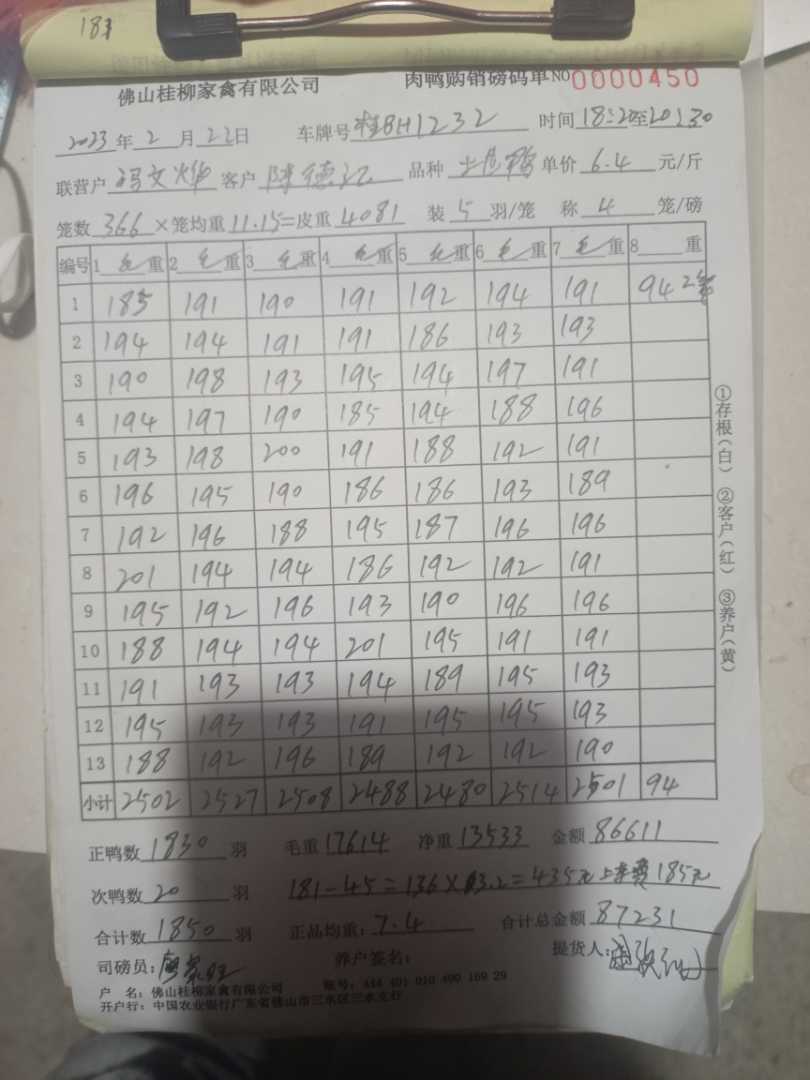 183
佛山桂柳家禽有限公司 肉鸭购销磅码单 NO 0000450
2023 年 2 月 22 日 车牌号 桂BH1232 时间 18:20 至 20:30
联营户 冯文烨 客户 陈德记 品种 单价 6.4 元/斤
笼数 366 ×笼均重 11.15 =皮重 4081 装 5 羽/笼 称 4 笼/磅
编号 1 毛重 2 毛重 3 毛重 4 毛重 5 毛重 6 毛重 7 毛重 8 重
1 185 191 190 191 192 194 191 94 2笼
2 194 194 191 191 186 193 193
3 190 198 193 195 194 197 191
4 194 197 190 185 194 188 196
5 193 198 200 191 188 192 191
6 196 195 190 186 186 193 189
7 192 196 188 195 187 196 196
8 201 194 194 186 192 192 191
9 195 192 196 193 190 196 196
10 188 194 194 201 195 191 191
11 191 193 193 194 189 195 193
12 195 193 193 191 195 195 193
13 188 192 196 189 192 192 190
小计 2502 2527 2508 2488 2480 2514 2501 94
①存根(白) ②客户(红) ③养户(黄)
正鸭数 1830 羽 毛重 17614 净重 13533 金额 86611
次鸭数 20 羽 181-45=136×3.2=435元 上车费185元
合计数 1850 羽 正品均重: 7.4 合计总金额 87231
司磅员: 养户签名: 提货人:
户 名: 佛山桂柳家禽有限公司 账号: 444 401 010 400 169 29
开户行: 中国农业银行广东省佛山市三水区三水支行